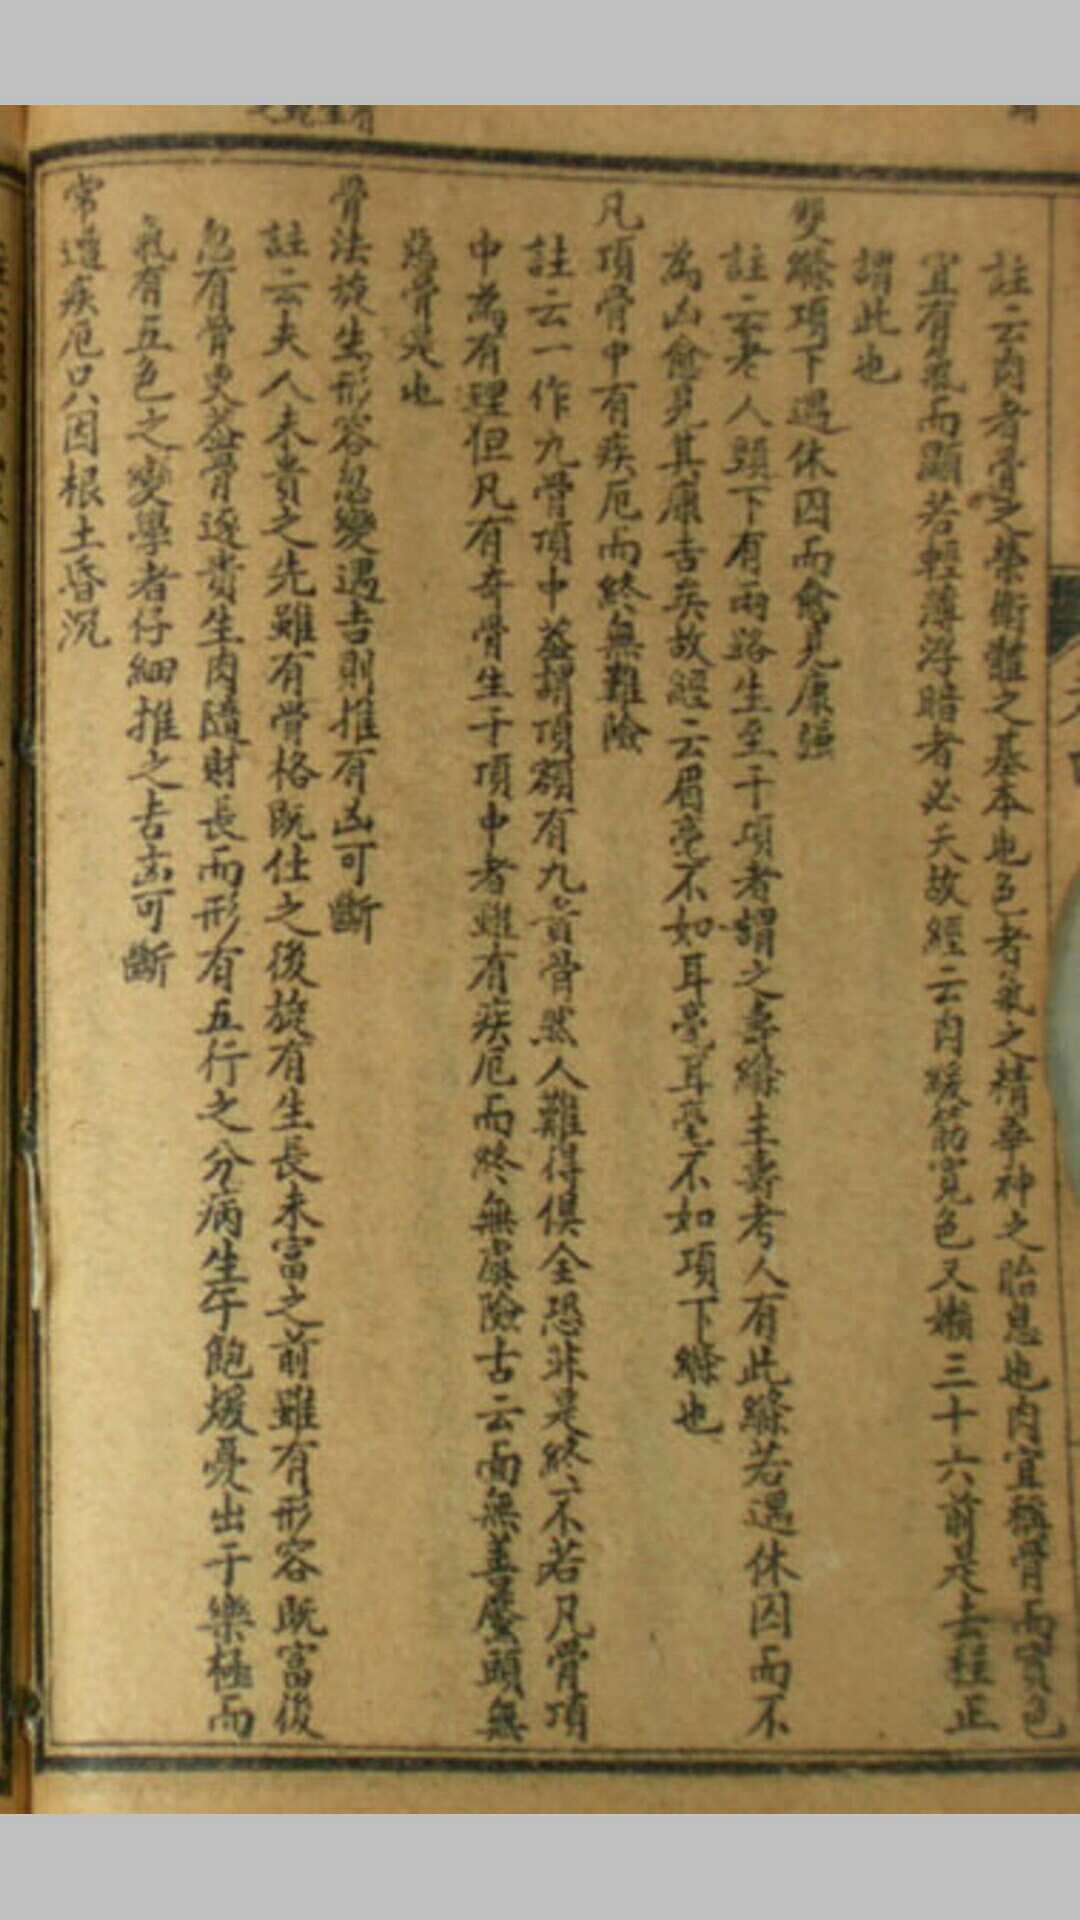 註云肉者骨之榮衛體之基本也色者氣之精華神之胎息也肉宜稱骨而實色
宜有氣而顯若輕薄浮暗者必夭故經云肉緩筋寬色又嫩三十六前是去程正
謂此也
雙縧項下遇休囚而愈見康强
註云老人頭下有兩路生至于項者謂之壽縧主壽考人有此縧若遇休囚而不
為凶愈見其康吉矣故經云眉毫不如耳毫耳毫不如項下縧也
凡項骨中有疾厄而終無難險
註云一作九骨頂中蓋謂頂額有九貴骨然人難得俱全恐非是終不若凡骨項
中為有理但凡有奇骨生于項中者雖有疾厄而終無虞險古云面無善靨頭無
惡骨是也
骨法旋生形容忽變遇吉則推有凶可斷
註云夫人未貴之先雖有骨格既仕之後旋有生長未富之前雖有形容既富後
忽有骨更蓋骨逐貴生肉隨財長而形有五行之分病生于飽煖憂出于樂極而
氣有五色之變學者仔細推之吉凶可斷
常遭疾厄只因根土昏沉